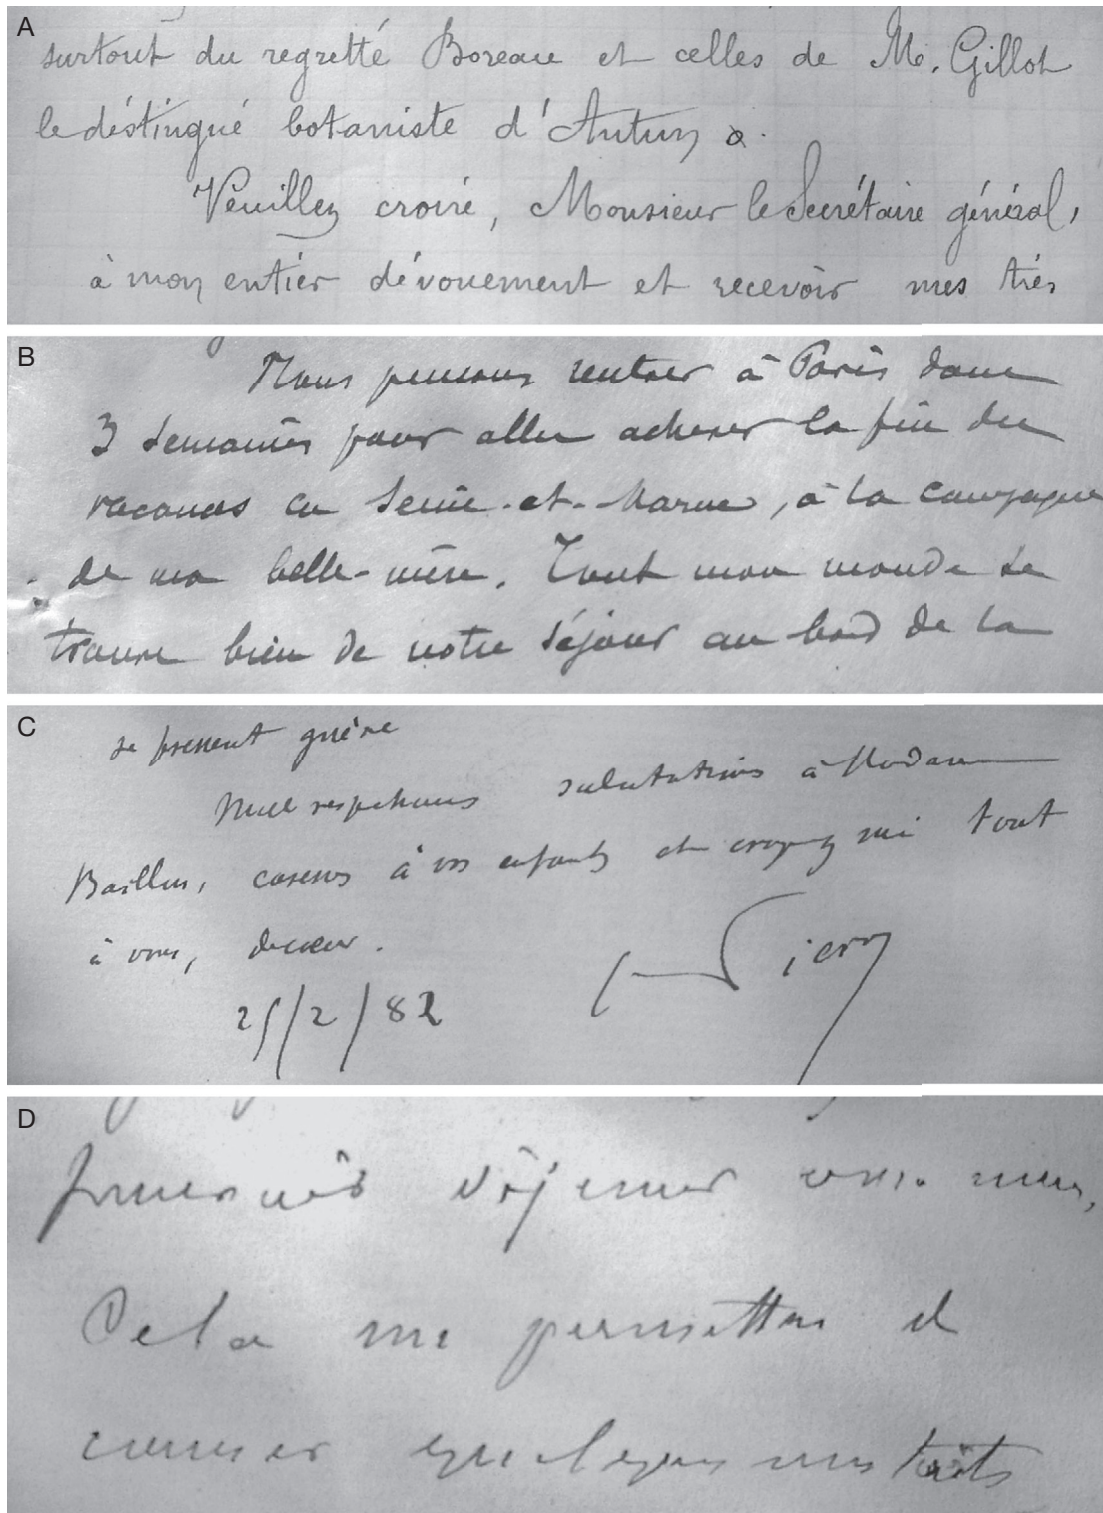 A
surtout du regretté Boreau et celles de M. Gillot
le déstingué botaniste d'Autun
Veuillez croire, Monsieur le Secrétaire général,
à mon entier dévouement et recevoir mes très
B
Nous pensons rentrer à Paris dans
3 semaines pour aller achever la fin des
vacances en Seine-et-Marne, à la campagne
de ma belle-mère. Tout mon monde se
trouve bien de notre séjour au bord de la
C
se pressent guère
Mille respectueuses salutations à Madame
Baillon, caresses à vos enfants et croyez moi tout
à vous, de cœur.
25/2/82
D
déjeuner avec nous,
Cela me permettra d
causer quelques instants